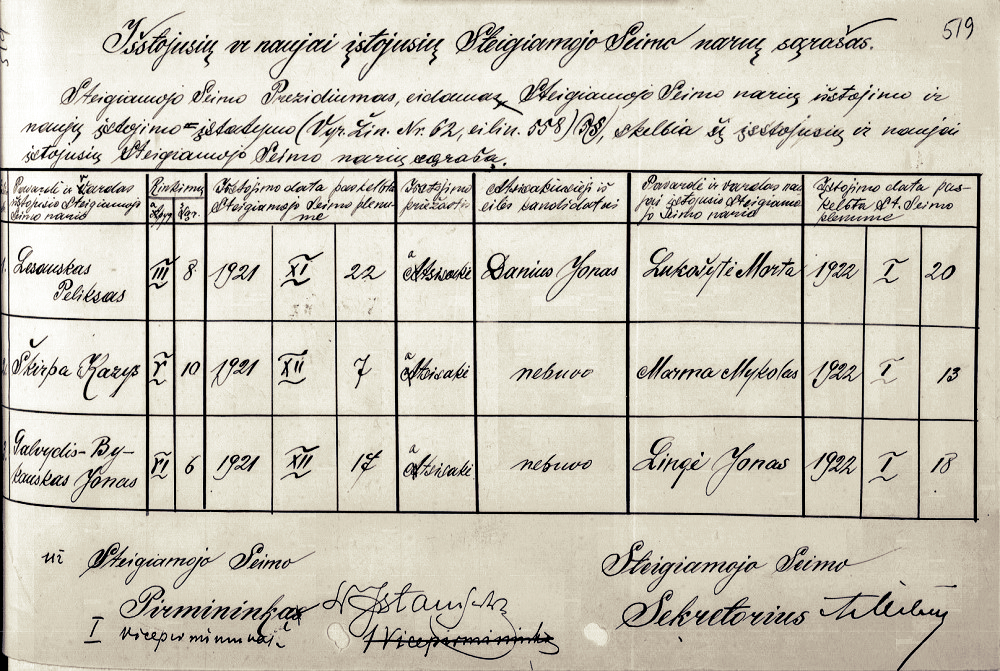 519
Išstojusių ir naujai įstojusių Steigiamojo Seimo narių sąrašas.
Steigiamojo Seimo Prezidiumas, eidamas Steigiamojo Seimo narių išstojimo ir
naujų įstojimo įstatymo (Vyr. Žin. Nr. 62, eilin. 558) 3§, skelbia šį išstojusių ir naujai
įstojusių Steigiamojo Seimo narių sąrašą.
Pavardė ir vardas išstojusio Steigiamojo Seimo nario | Rinkimų | Išstojimo data paskelbta Steigiamojo Seimo plenume | Išstojimo priežastis | Atsisakiusieji iš eilės kandidatai | Pavardė ir vardas naujai įstojusio Steigiamojo Seimo nario | Įstojimo data paskelbta St. Seimo plenume
1. Lesauskas Peliksas | III | 8 | 1921 | XI | 22 | Atsisakė | Danius Jonas | Lukošytė Morta | 1922 | I | 20
Škirpa Kazys | V | 10 | 1921 | XII | 7 | Atsisakė | nebuvo | Marma Mykolas | 1922 | I | 13
Galvydis-Bykauskas Jonas | VI | 6 | 1921 | XII | 17 | Atsisakė | nebuvo | Lingė Jonas | 1922 | I | 18
už Steigiamojo Seimo
Steigiamojo Seimo
Pirmininką
Sekretorius
I vicepirmininkas